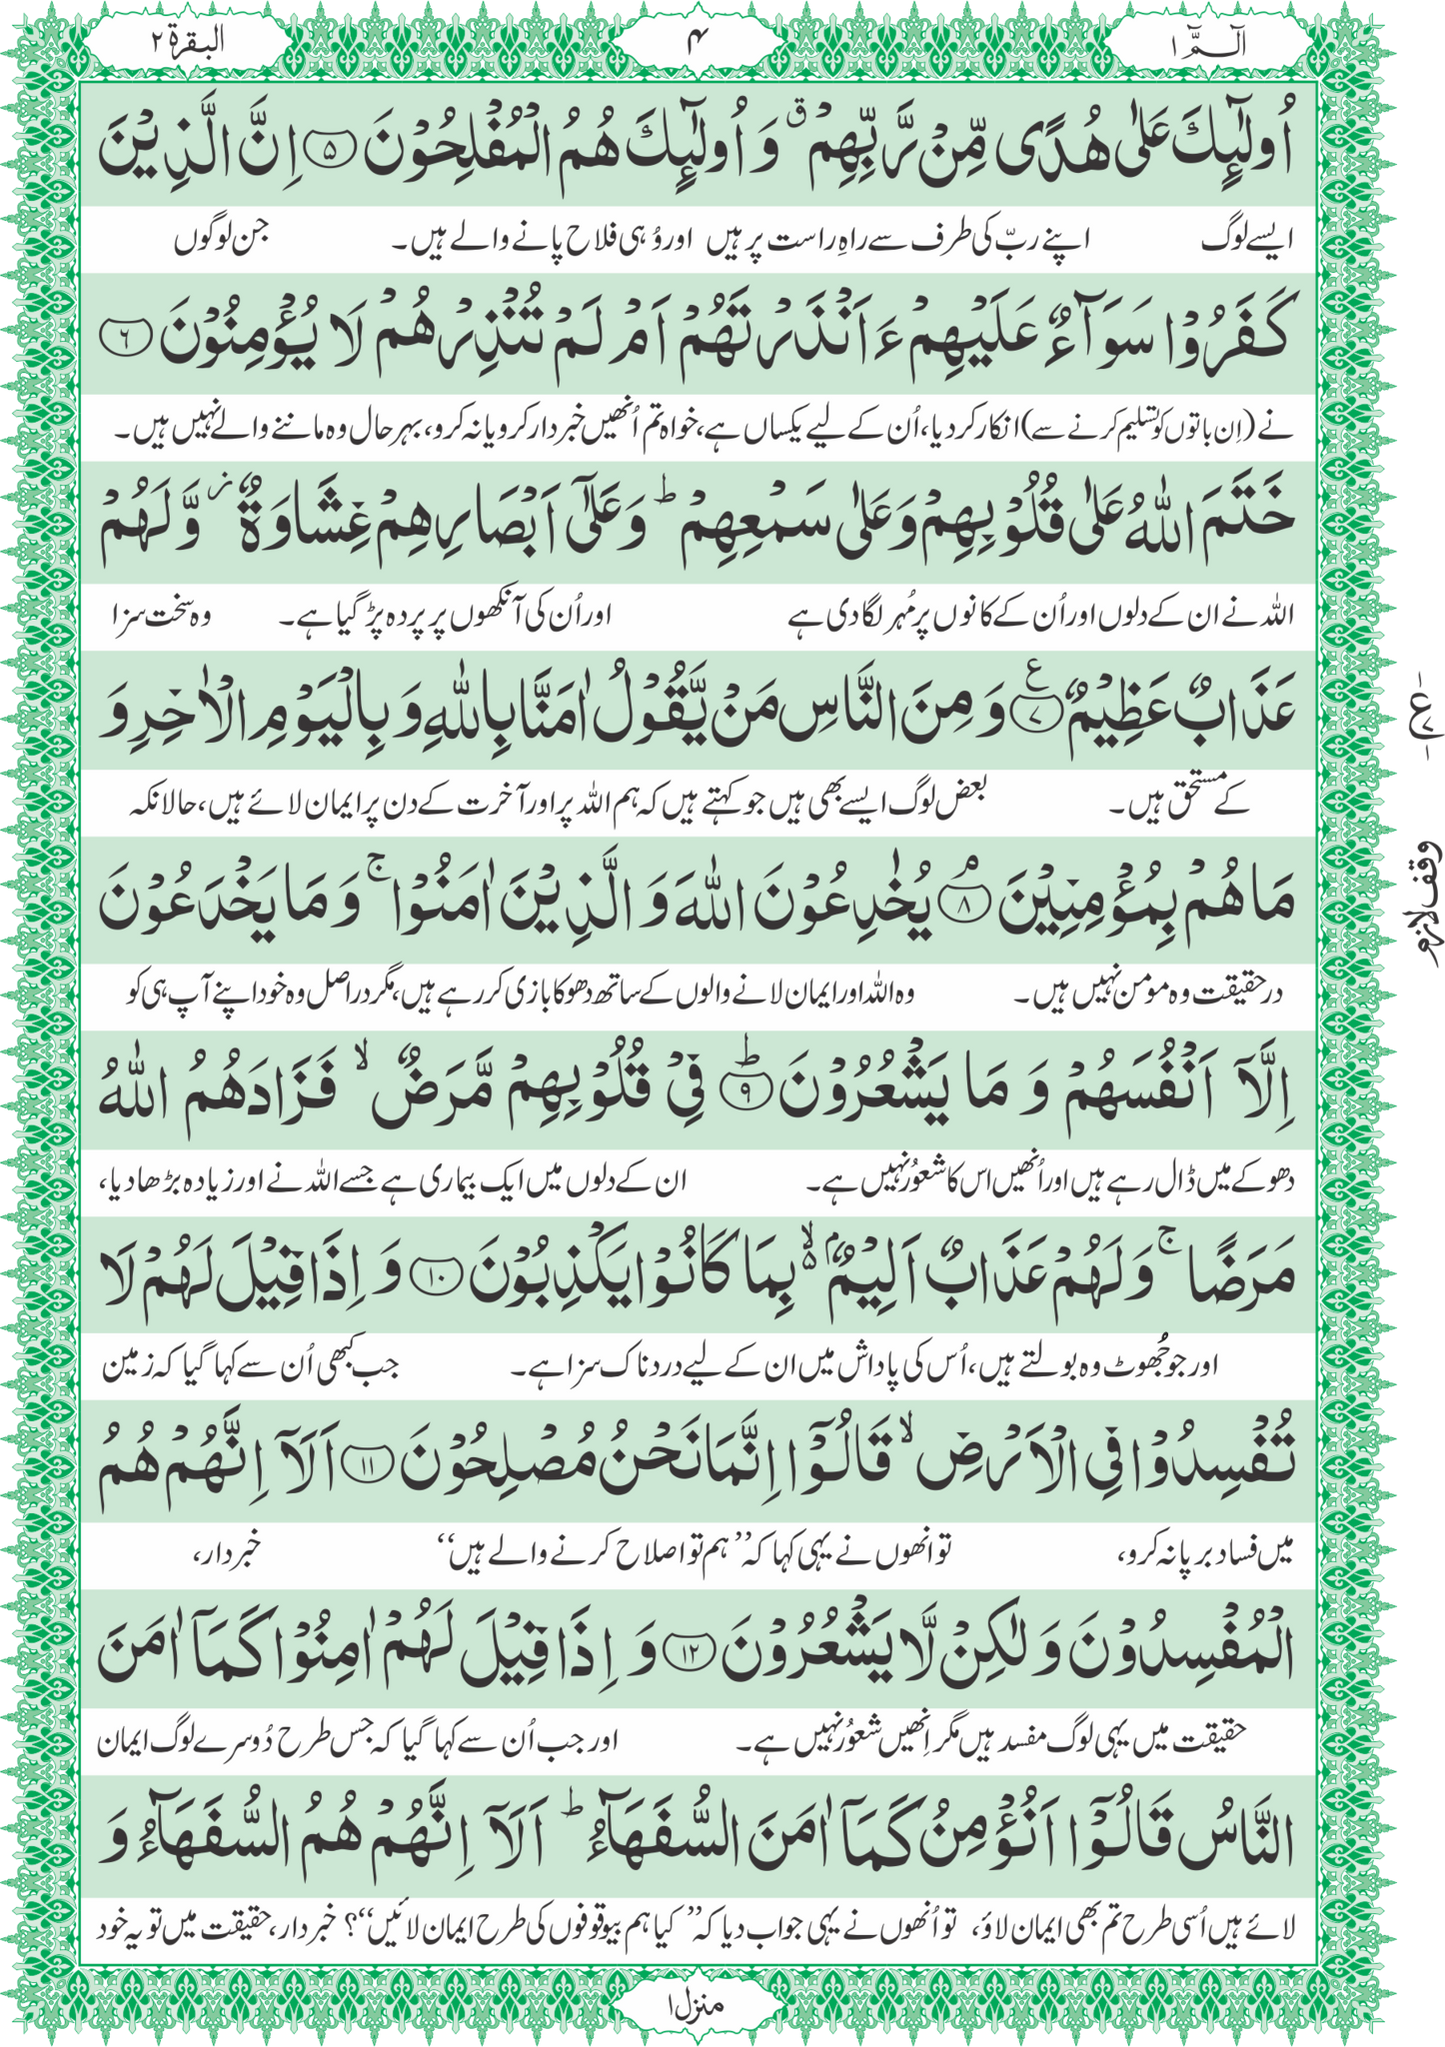 الٓـمّٓ ١
۴
البقرة ٢
اُولٰٓئِكَ عَلٰى هُدًى مِّنْ رَّبِّهِمْ ۗ وَ اُولٰٓئِكَ هُمُ الْمُفْلِحُوْنَ ۝۵ اِنَّ الَّذِيْنَ
ایسے لوگ اپنے ربّ کی طرف سے راہِ راست پر ہیں اور وُہی فلاح پانے والے ہیں۔ جن لوگوں
كَفَرُوْا سَوَآءٌ عَلَيْهِمْ ءَاَنْذَرْتَهُمْ اَمْ لَمْ تُنْذِرْهُمْ لَا يُؤْمِنُوْنَ ۝۶
نے (اِن باتوں کو تسلیم کرنے سے) انکار کر دیا، اُن کے لیے یکساں ہے، خواہ تم اُنھیں خبردار کرو یا نہ کرو، بہرحال وہ ماننے والے نہیں ہیں۔
خَتَمَ اللّٰهُ عَلٰى قُلُوْبِهِمْ وَعَلٰى سَمْعِهِمْ ؕ وَعَلٰٓى اَبْصَارِهِمْ غِشَاوَةٌ ؗ وَّلَهُمْ
اللہ نے ان کے دلوں اور اُن کے کانوں پر مُہر لگا دی ہے اور اُن کی آنکھوں پر پردہ پڑ گیا ہے۔ وہ سخت سزا
عَذَابٌ عَظِيْمٌ ۝۷ ع وَ مِنَ النَّاسِ مَنْ يَّقُوْلُ اٰمَنَّا بِاللّٰهِ وَ بِالْيَوْمِ الْاٰخِرِ وَ
کے مستحق ہیں۔ بعض لوگ ایسے بھی ہیں جو کہتے ہیں کہ ہم اللہ پر اور آخرت کے دن پر ایمان لائے ہیں، حالانکہ
مَا هُمْ بِمُؤْمِنِيْنَ ۝۸ۘ يُخٰدِعُوْنَ اللّٰهَ وَ الَّذِيْنَ اٰمَنُوْا ۚ وَ مَا يَخْدَعُوْنَ
وقف لازم
درحقیقت وہ مومن نہیں ہیں۔ وہ اللہ اور ایمان لانے والوں کے ساتھ دھوکا بازی کر رہے ہیں، مگر دراصل وہ خود اپنے آپ ہی کو
اِلَّآ اَنْفُسَهُمْ وَ مَا يَشْعُرُوْنَ ۝۹ؕ فِيْ قُلُوْبِهِمْ مَّرَضٌ ۙ فَزَادَهُمُ اللّٰهُ
دھوکے میں ڈال رہے ہیں اور اُنھیں اس کا شعوُر نہیں ہے۔ ان کے دلوں میں ایک بیماری ہے جسے اللہ نے اور زیادہ بڑھا دیا،
مَرَضًا ۚ وَ لَهُمْ عَذَابٌ اَلِيْمٌۢ ۙ۵ بِمَا كَانُوْا يَكْذِبُوْنَ ۝۱۰ وَ اِذَا قِيْلَ لَهُمْ لَا
اور جو جُھوٹ وہ بولتے ہیں، اُس کی پاداش میں ان کے لیے دردناک سزا ہے۔ جب کبھی اُن سے کہا گیا کہ زمین
تُفْسِدُوْا فِي الْاَرْضِ ۙ قَالُوْٓا اِنَّمَا نَحْنُ مُصْلِحُوْنَ ۝۱۱ اَلَآ اِنَّهُمْ هُمُ
میں فساد برپا نہ کرو، تو انھوں نے یہی کہا کہ ’’ہم تو اصلاح کرنے والے ہیں‘‘ خبردار،
الْمُفْسِدُوْنَ وَ لٰكِنْ لَّا يَشْعُرُوْنَ ۝۱۲ وَ اِذَا قِيْلَ لَهُمْ اٰمِنُوْا كَمَآ اٰمَنَ
حقیقت میں یہی لوگ مفسد ہیں مگر اِنھیں شعوُر نہیں ہے۔ اور جب اُن سے کہا گیا کہ جس طرح دُوسرے لوگ ایمان
النَّاسُ قَالُوْٓا اَنُؤْمِنُ كَمَآ اٰمَنَ السُّفَهَآءُ ؕ اَلَآ اِنَّهُمْ هُمُ السُّفَهَآءُ وَ
لائے ہیں اُسی طرح تم بھی ایمان لاؤ، تو اُنھوں نے یہی جواب دیا کہ ’’کیا ہم بیوقوفوں کی طرح ایمان لائیں‘‘؟ خبردار، حقیقت میں تو یہ خود
منزل ۱